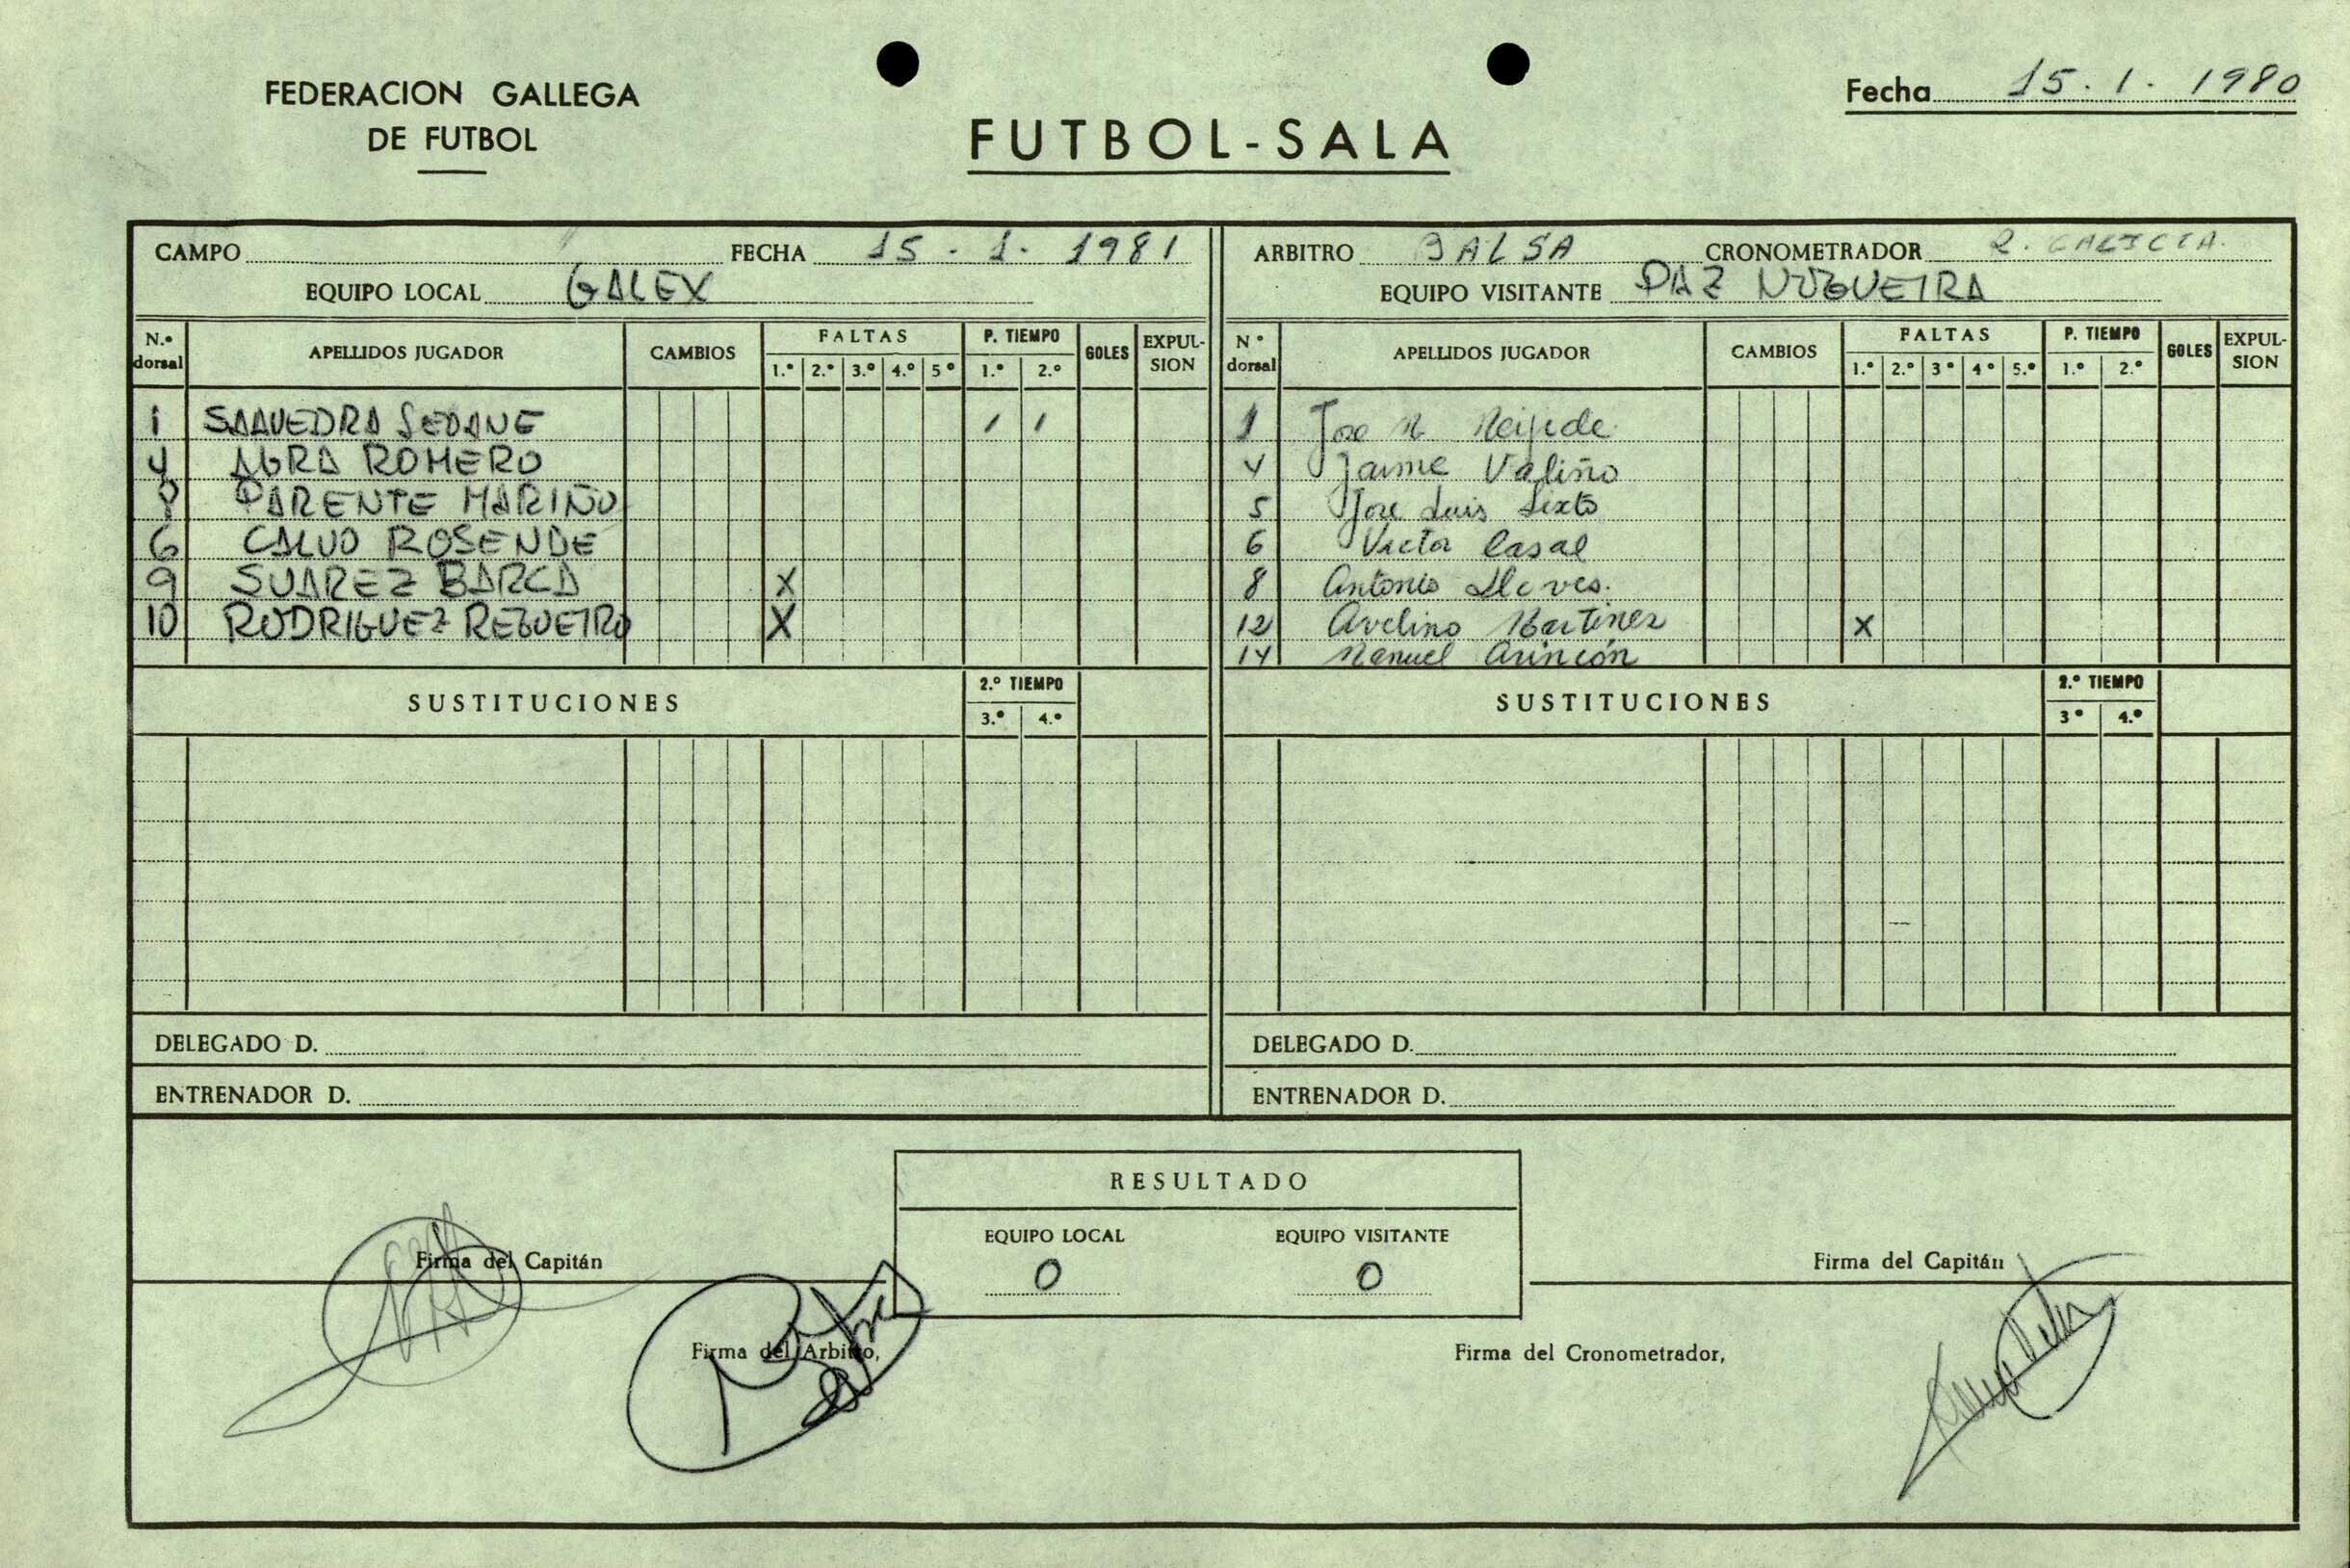 FEDERACION GALLEGA
DE FUTBOL
FUTBOL-SALA
Fecha 15.1.1980
CAMPO FECHA 15-1-1981
EQUIPO LOCAL GALEX
N.º dorsal APELLIDOS JUGADOR CAMBIOS FALTAS P. TIEMPO GOLES EXPULSION
1.º 2.º 3.º 4.º 5º 1.º 2.º
1 SAAVEDRA SEOANE / /
4 AGRA ROMERO
8 PARENTE MARIÑO
6 CALVO ROSENDE
9 SUAREZ BARCA X
10 RODRIGUEZ REGUEIRO X
SUSTITUCIONES 2.º TIEMPO
3.º 4.º
DELEGADO D.
ENTRENADOR D.
ARBITRO BALSA CRONOMETRADOR R. GALICIA.
EQUIPO VISITANTE PAZ NOGUEIRA
Nº dorsal APELLIDOS JUGADOR CAMBIOS FALTAS P. TIEMPO GOLES EXPULSION
1.º 2.º 3º 4º 5.º 1.º 2.º
1 Jose M
4 Jaime Valiño
5 Jose Luis Sixto
6 Victor Casal
8 Antonio
12 Avelino Martinez X
14 Manuel
SUSTITUCIONES 2.º TIEMPO
3º 4.º
DELEGADO D.
ENTRENADOR D.
RESULTADO
EQUIPO LOCAL EQUIPO VISITANTE
0 0
Firma del Capitán
Firma del Capitán
Firma del Arbitro,
Firma del Cronometrador,